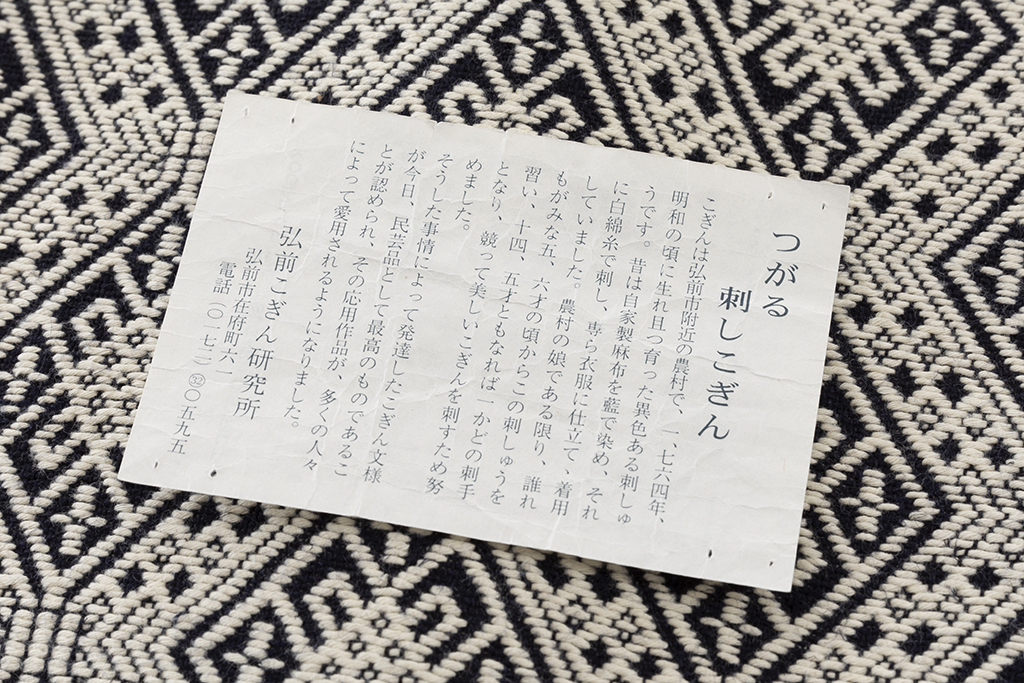 つがる
刺しこぎん
こぎんは弘前市附近の農村で、一、七六四年、
明和の頃に生れ且つ育った異色ある刺しゅ
うです。昔は自家製麻布を藍で染め、それ
に白綿糸で刺し、専ら衣服に仕立て、着用
していました。農村の娘である限り、誰れ
もがみな五、六才の頃からこの刺しゅうを
習い、十四、五才ともなれば一かどの刺手
となり、競って美しいこぎんを刺すため努
めました。
そうした事情によって発達したこぎん文様
が今日、民芸品として最高のものであるこ
とが認められ、その応用作品が、多くの人々
によって愛用されるようになりました。
弘前こぎん研究所
弘前市在府町六一
電話(〇一七二)㉜〇五九五